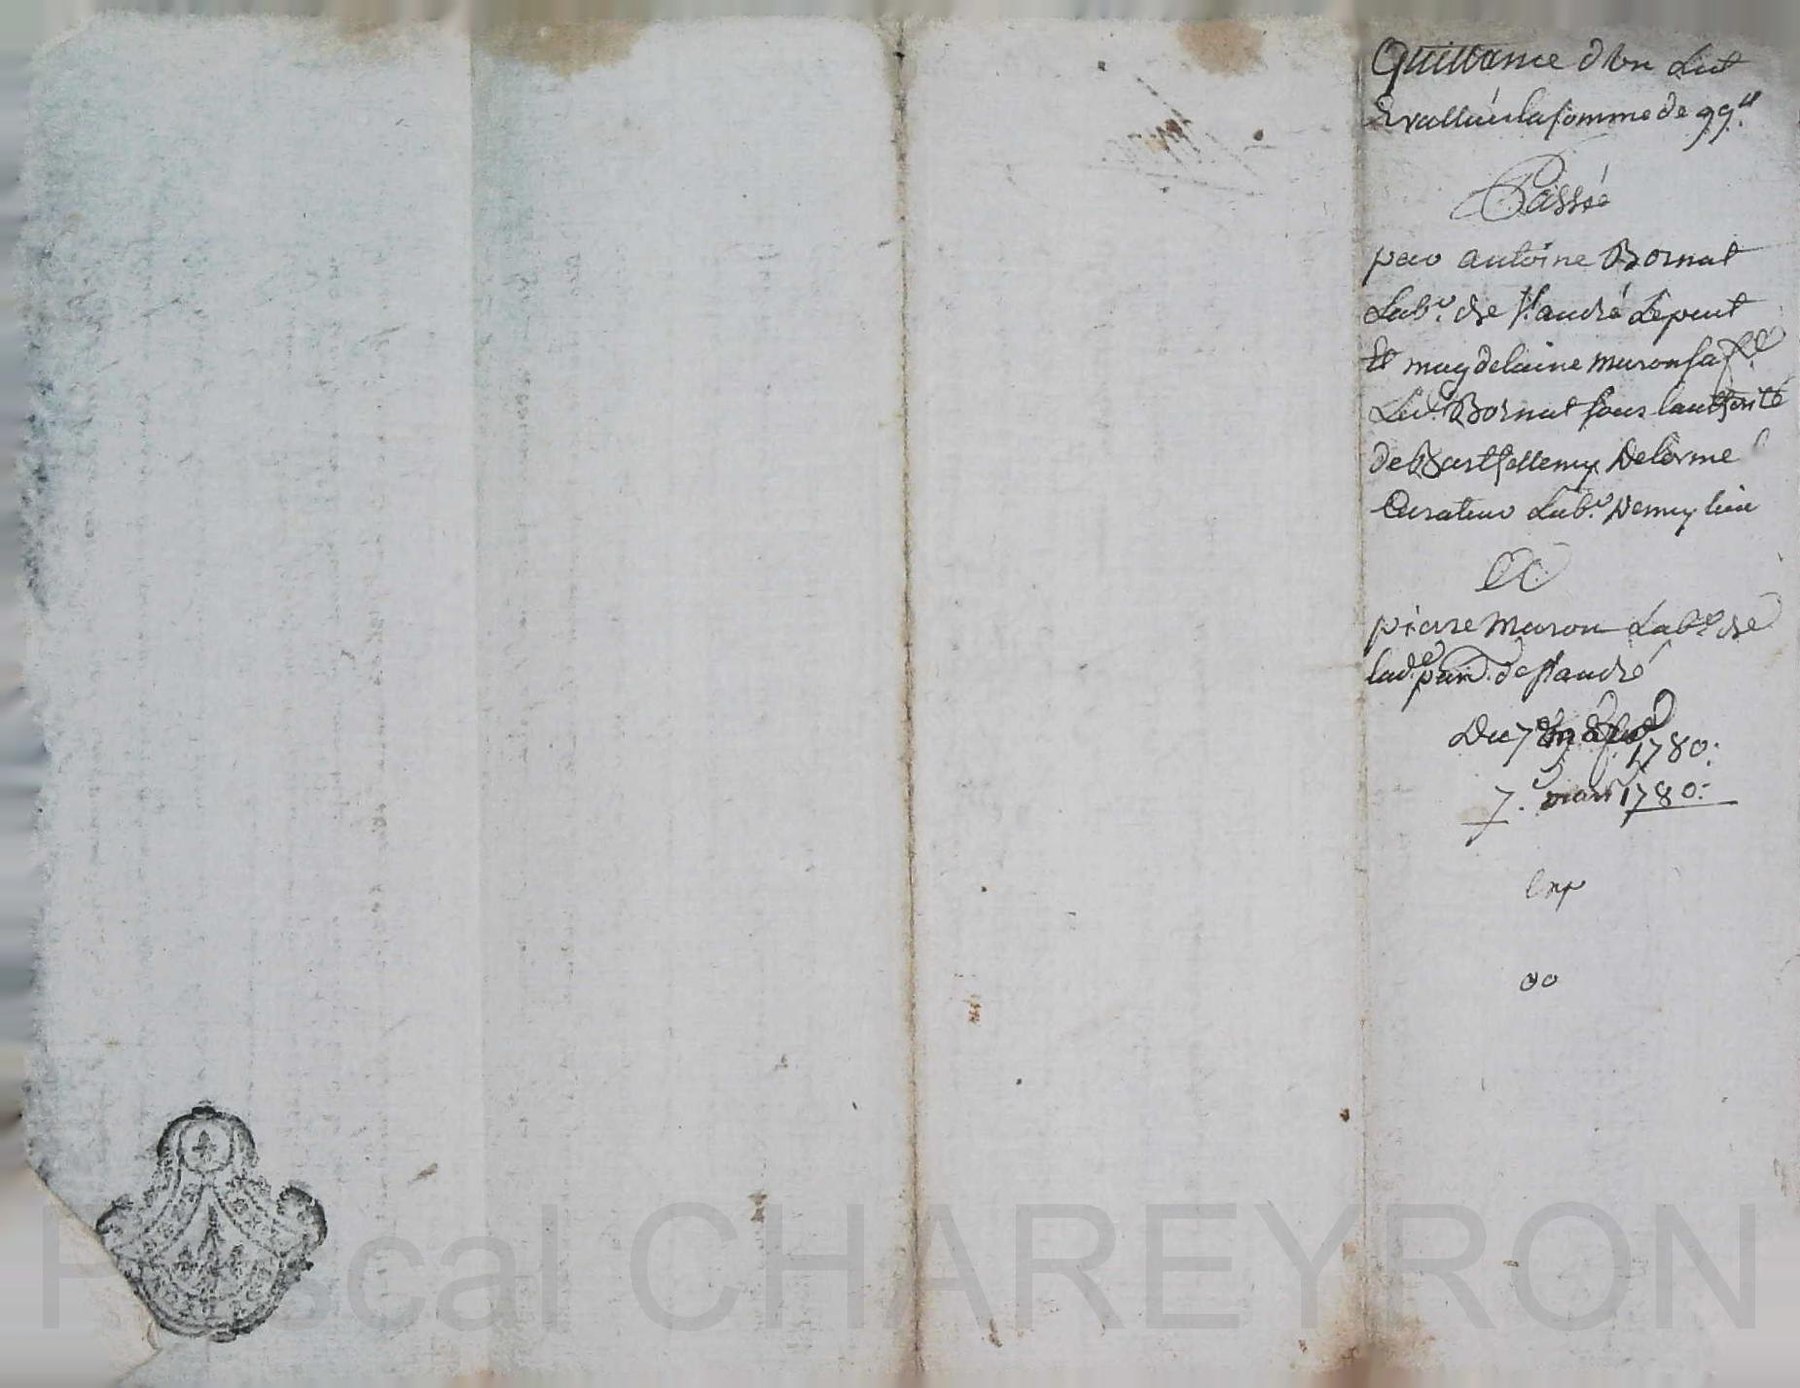 Quittance d'un Lict
Evallué la somme de 99.ll
Passée
par antoine Bornat
Lab.r de st. andré Lepuit
Et magdelaine muron sa f.e
Led. Bornat sous lauthorité
de Barthellemy Delorme
Curateur Lab.r
Et
pierre muron Lab.r de
lad.e par. de st andré
Du 7 1780.
7. mars 1780.
exp
Pascal CHAREYRON